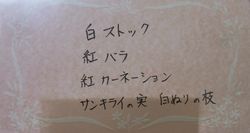 白 ストック
紅 バラ
紅 カーネーション
サンキライの実 白ぬりの枝